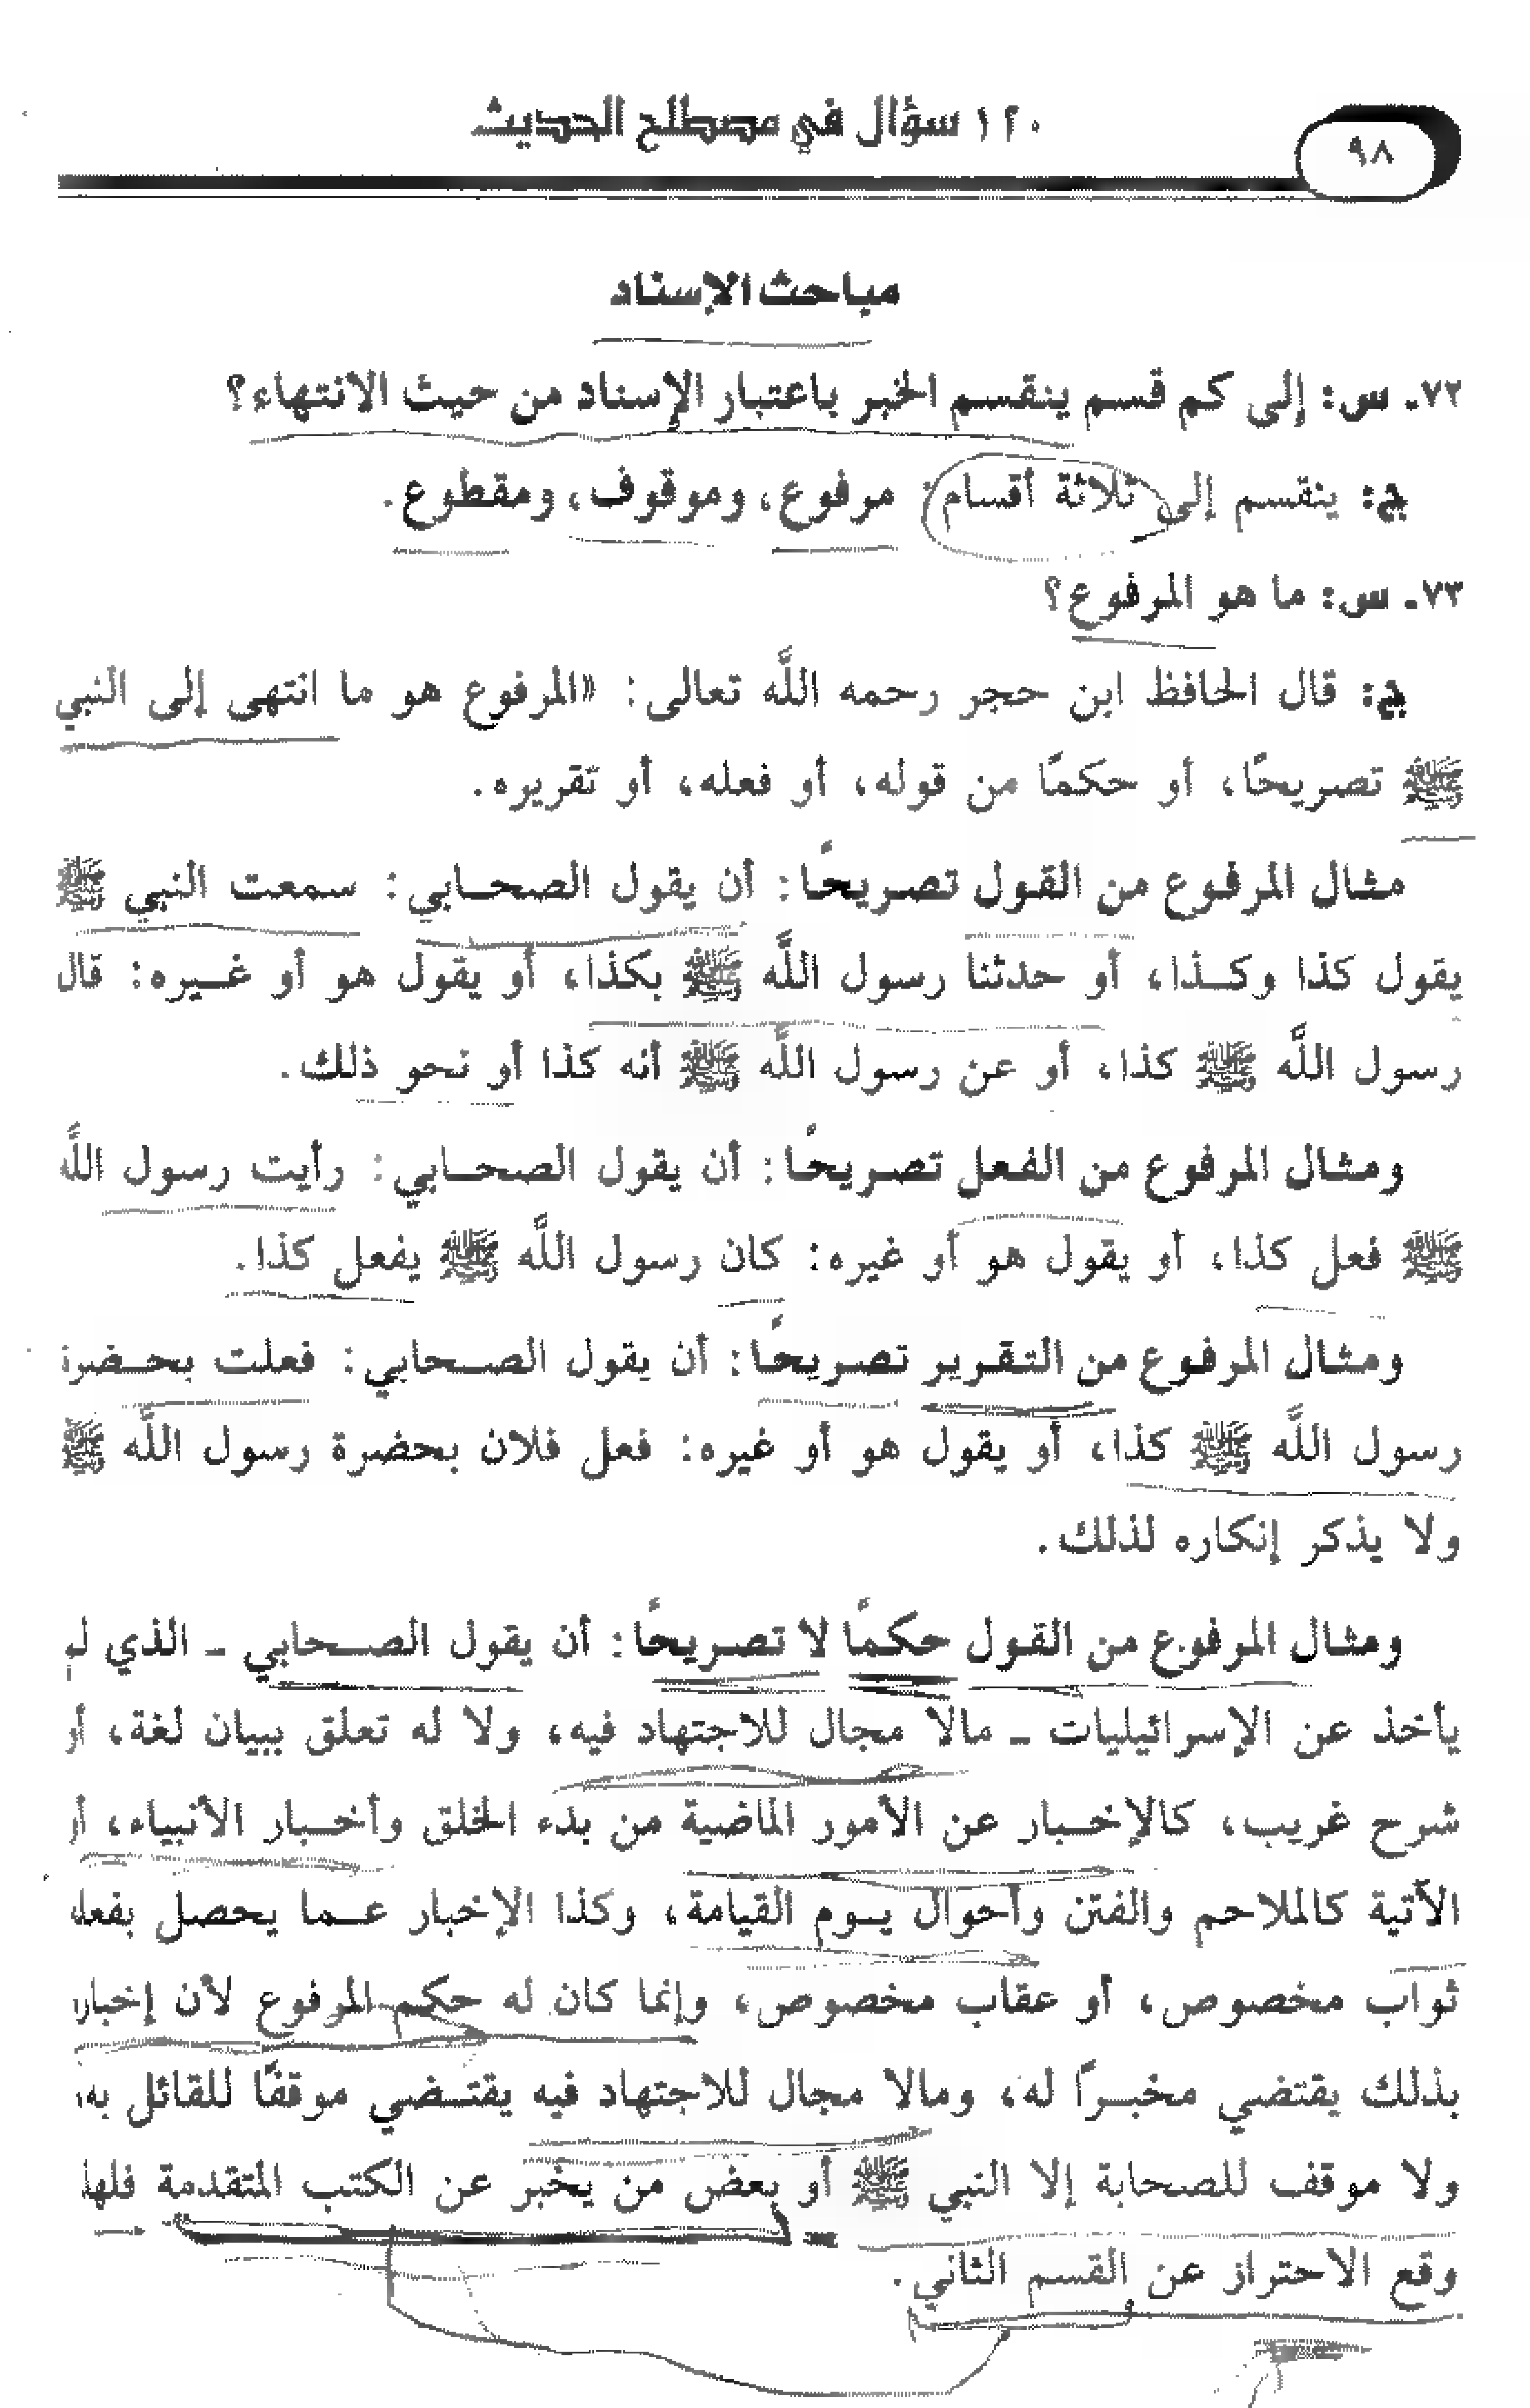 ١٢٠ سؤال في مصطلح الحديث
٩٨
مباحث الإسناد
٧٢ـ س: إلى كم قسم ينقسم الخبر باعتبار الإسناد من حيث الانتهاء؟
ج: ينقسم إلى ثلاثة أقسام: مرفوع، وموقوف، ومقطوع.
٧٣ـ س: ما هو المرفوع؟
ج: قال الحافظ ابن حجر رحمه اللَّه تعالى: «المرفوع هو ما انتهى إلى النبي
ﷺ تصريحًا، أو حكمًا من قوله، أو فعله، أو تقريره.
مثال المرفوع من القول تصريحًا: أن يقول الصحابي: سمعت النبي ﷺ
يقول كذا وكذا، أو حدثنا رسول اللَّه ﷺ بكذا، أو يقول هو أو غيره: قال
رسول اللَّه ﷺ كذا، أو عن رسول اللَّه ﷺ أنه كذا أو نحو ذلك.
ومثال المرفوع من الفعل تصريحًا: أن يقول الصحابي: رأيت رسول اللَّه
ﷺ فعل كذا، أو يقول هو أو غيره: كان رسول اللَّه ﷺ يفعل كذا.
ومثال المرفوع من التقرير تصريحًا: أن يقول الصحابي: فعلت بحضرة
رسول اللَّه ﷺ كذا، أو يقول هو أو غيره: فعل فلان بحضرة رسول اللَّه ﷺ
ولا يذكر إنكاره لذلك.
ومثال المرفوع من القول حكمًا لا تصريحًا: أن يقول الصحابي ـ الذي لم
يأخذ عن الإسرائيليات ـ مالا مجال للاجتهاد فيه، ولا له تعلق ببيان لغة، أو
شرح غريب، كالإخبار عن الأمور الماضية من بدء الخلق وأخبار الأنبياء، أو
الآتية كالملاحم والفتن وأحوال يوم القيامة، وكذا الإخبار عما يحصل بفعله
ثواب مخصوص، أو عقاب مخصوص، وإنما كان له حكم المرفوع لأن إخباره
بذلك يقتضي مخبرًا له، ومالا مجال للاجتهاد فيه يقتضي موقفًا للقائل به،
ولا موقف للصحابة إلا النبي ﷺ أو بعض من يخبر عن الكتب المتقدمة فلهذا
وقع الاحتراز عن القسم الثاني.